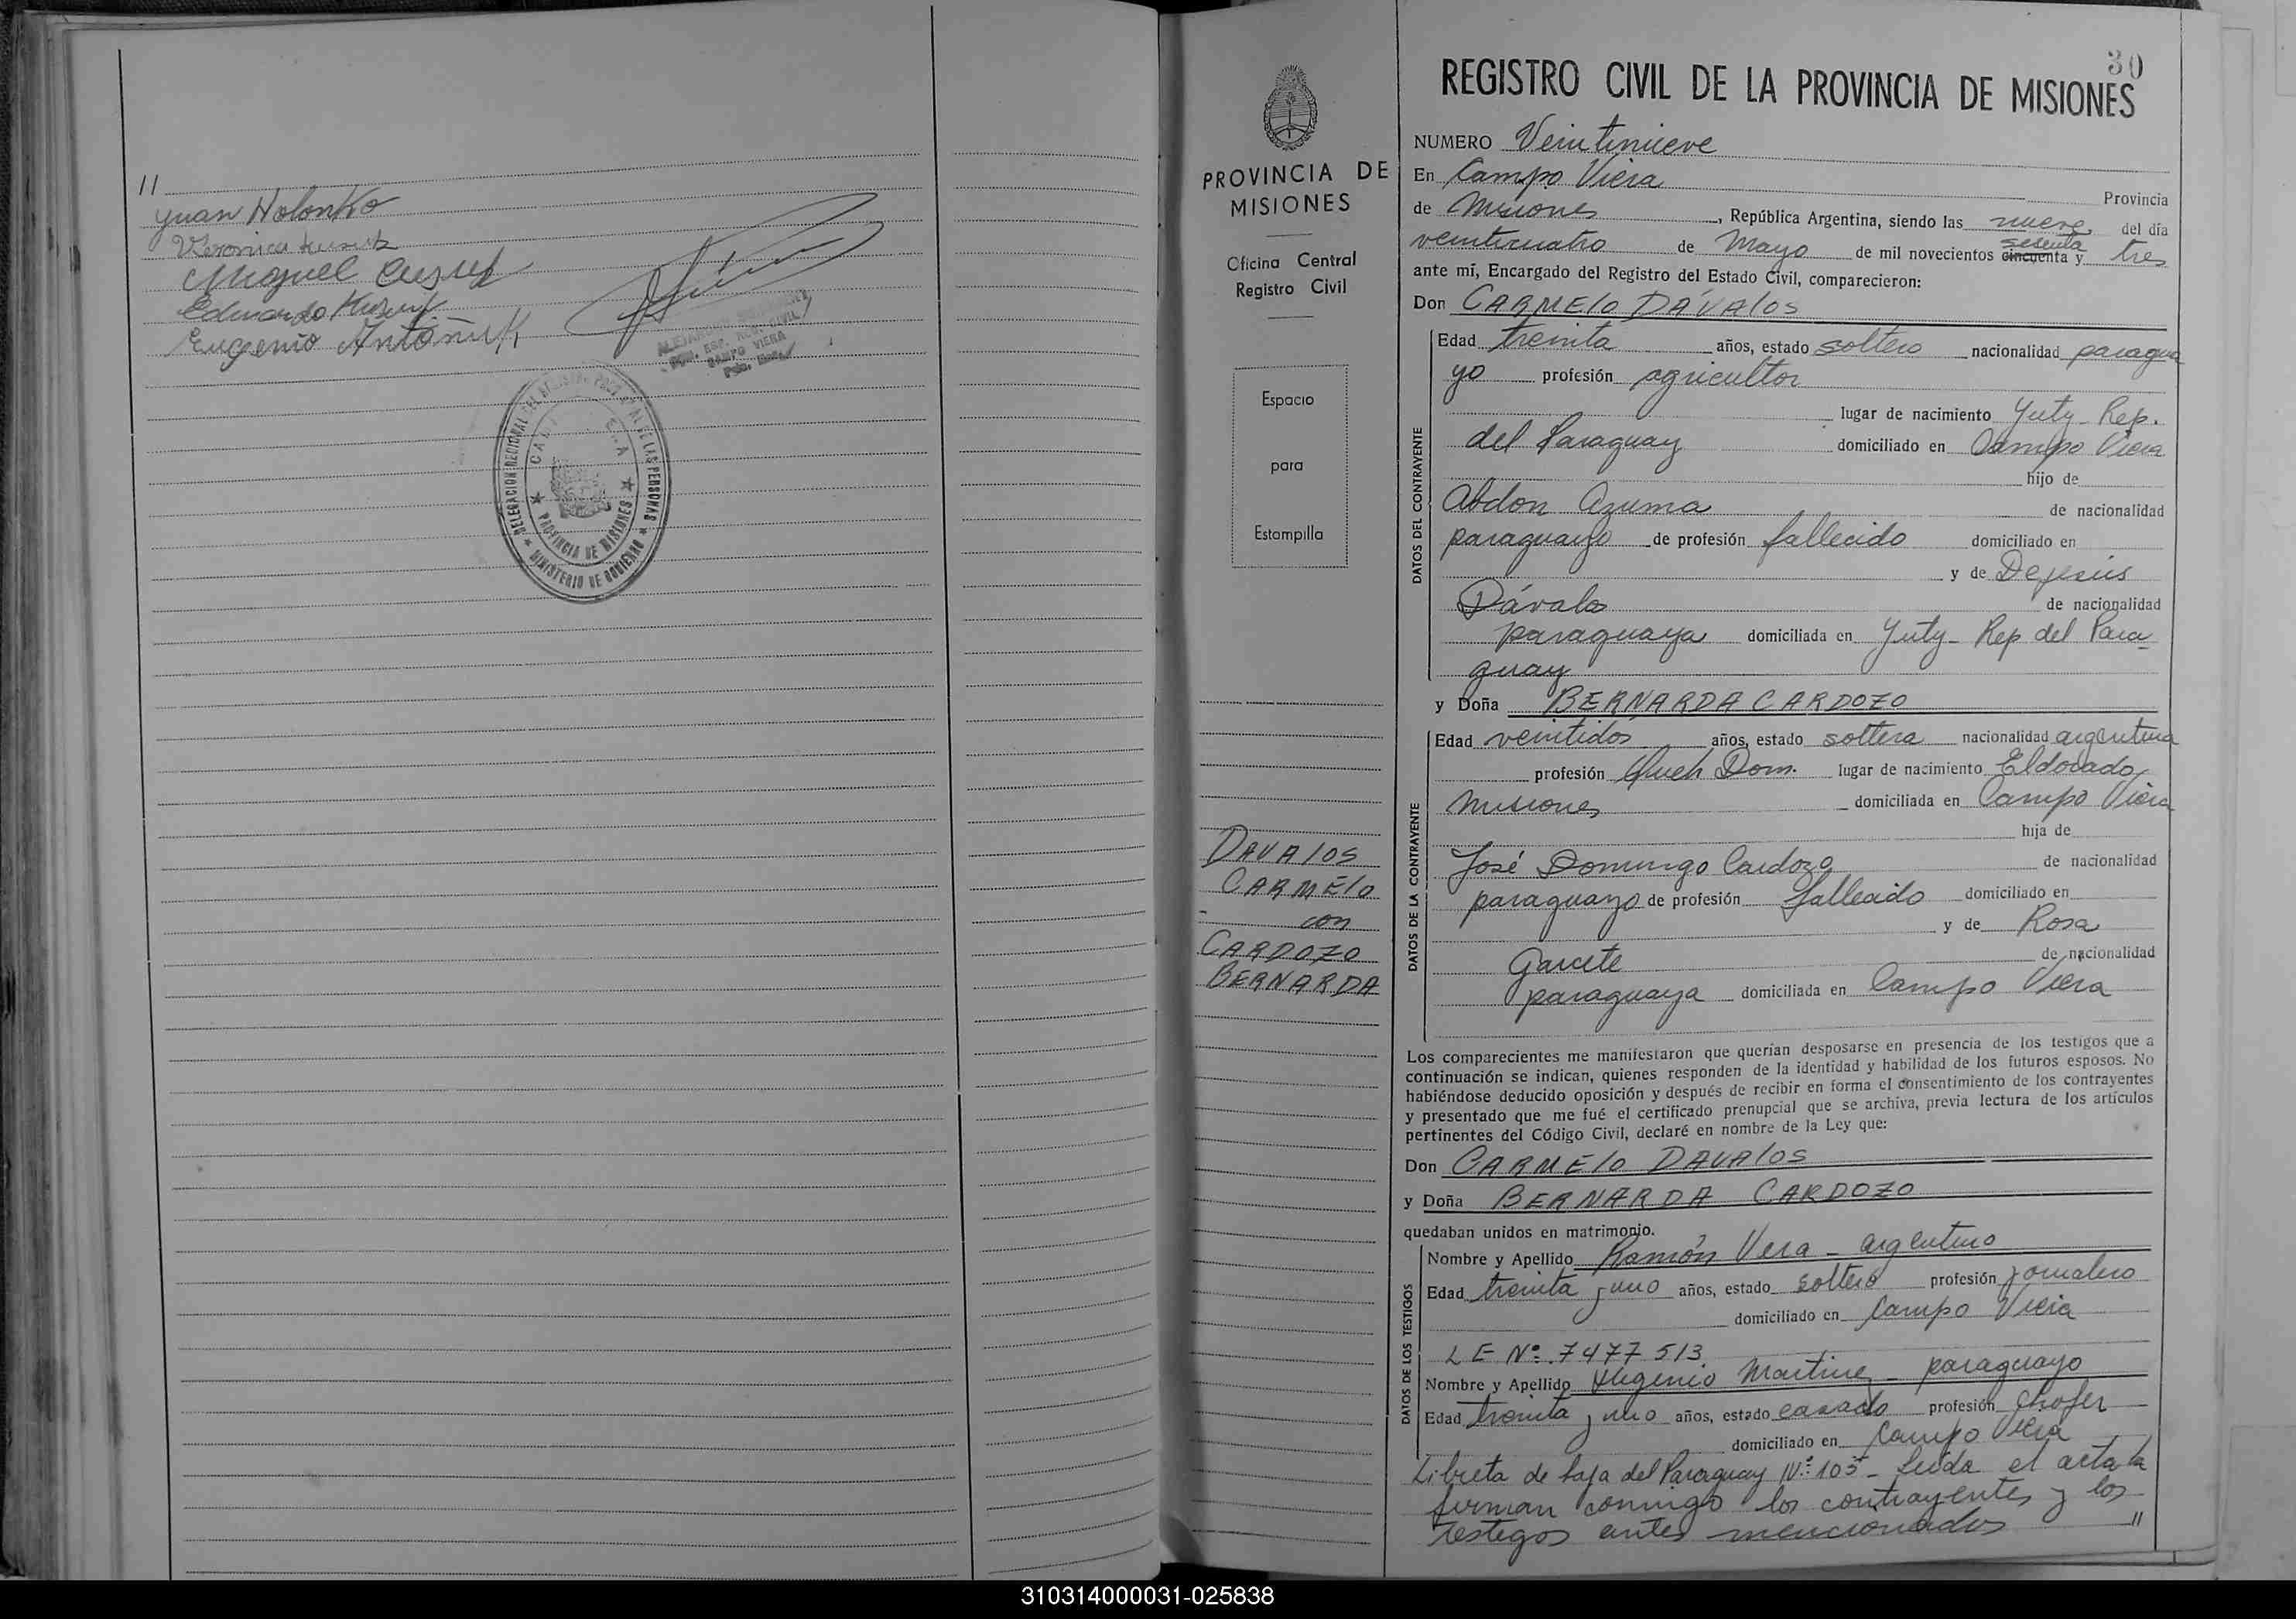 11
Juan Holonko
Veronica Kusuk
Miguel Cuzuk
Eduardo Kuzuk
Eugenio Antoñuk
REG. CIVIL
CAMPO VIERA
DELEGACION REGIONAL DEL REGISTRO PROVINCIAL DE LAS PERSONAS
PROVINCIA DE MISIONES
MINISTERIO DE GOBIERNO
PROVINCIA DE
MISIONES
Oficina Central
Registro Civil
Espacio
para
Estampilla
DAVALOS
CARMELO
con
CARDOZO
BERNARDA
30
REGISTRO CIVIL DE LA PROVINCIA DE MISIONES
NUMERO Veintinueve
En Campo Viera Provincia
de Misiones, República Argentina, siendo las nueve del día
veinticuatro de Mayo de mil novecientos cincuenta sesenta y tres
ante mí, Encargado del Registro del Estado Civil, comparecieron:
Don CARMELO DÁVALOS
DATOS DEL CONTRAYENTE
Edad treinta años, estado soltero nacionalidad paragua
yo profesión agricultor
lugar de nacimiento Yuty - Rep.
del Paraguay domiciliado en Campo Viera
hijo de
Abdon Azuma de nacionalidad
paraguayo de profesión fallecido domiciliado en
y de Dejesús
Dávalo de nacionalidad
paraguaya domiciliada en Yuty - Rep del Para
guay
y Doña BERNARDA CARDOZO
DATOS DE LA CONTRAYENTE
Edad veintidos años, estado soltera nacionalidad argentina
profesión Queh Dom. lugar de nacimiento Eldorado,
Misiones domiciliada en Campo Viera
hija de
José Domingo Cardozo de nacionalidad
paraguayo de profesión fallecido domiciliado en
y de Rosa
Garcete de nacionalidad
paraguaya domiciliada en Campo Viera
Los comparecientes me manifestaron que querían desposarse en presencia de los testigos que a
continuación se indican, quienes responden de la identidad y habilidad de los futuros esposos. No
habiéndose deducido oposición y después de recibir en forma el consentimiento de los contrayentes
y presentado que me fué el certificado prenupcial que se archiva, previa lectura de los artículos
pertinentes del Código Civil, declaré en nombre de la Ley que:
Don CARMELO DAVALOS
y Doña BERNARDA CARDOZO
quedaban unidos en matrimonio.
DATOS DE LOS TESTIGOS
Nombre y Apellido Ramón Vera - argentino
Edad treinta y uno años, estado soltero profesión jornalero
domiciliado en Campo Viera
LE Nº 7477513
Nombre y Apellido Higenio Martinez - paraguayo
Edad treinta y uno años, estado casado profesión chofer
domiciliado en Campo Viera
Libreta de baja del Paraguay Nº 105 - Leida el acta la
firman conmigo los contrayentes y los
testigos antes mencionados 11
310314000031-025838